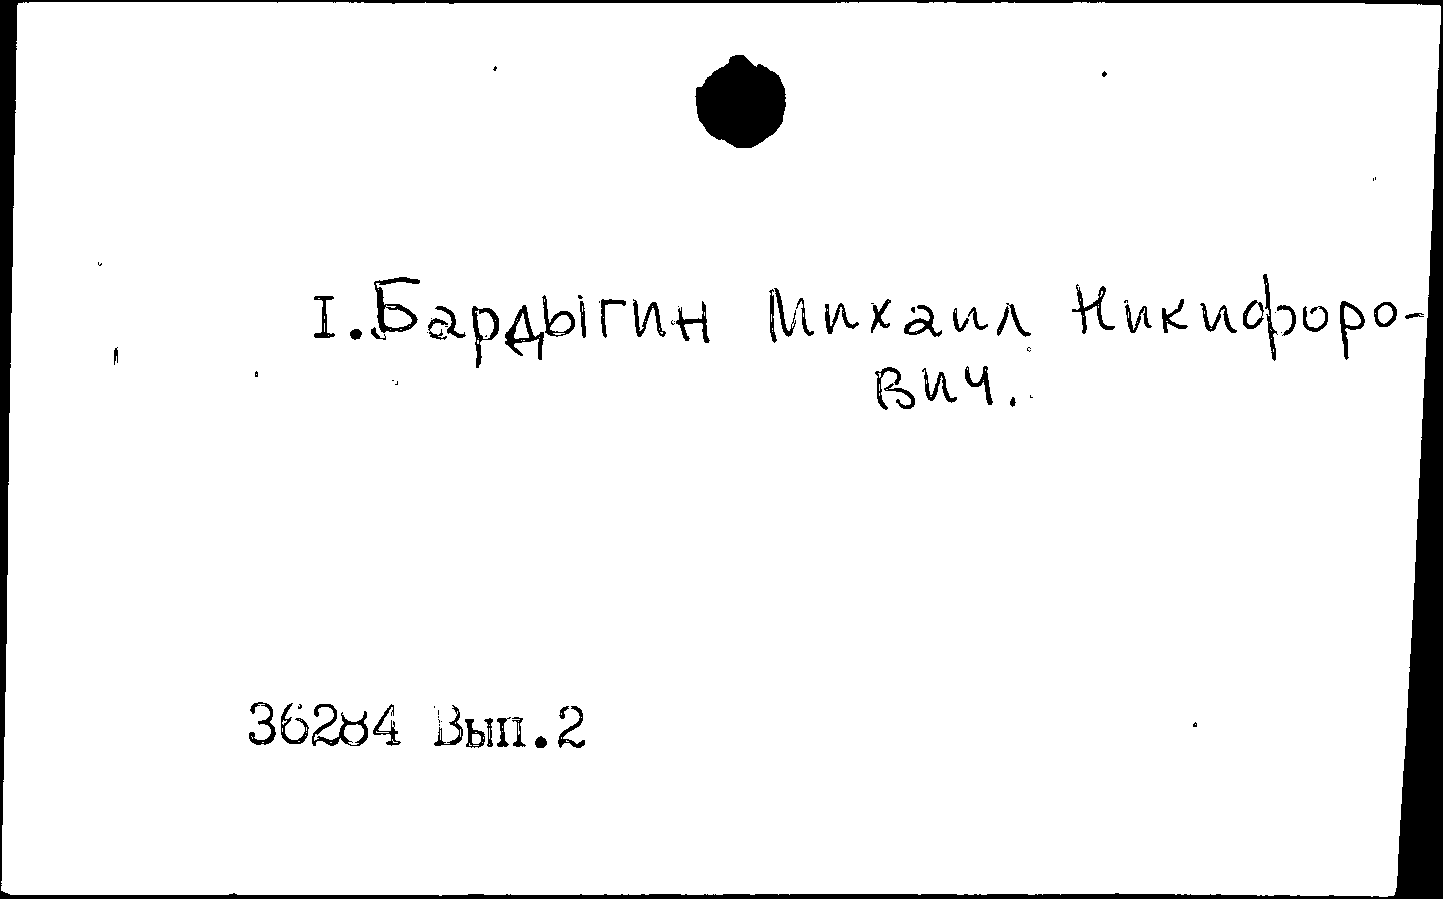 I. Бардыгин Михаил Никифоро-
вич.
36284 Вып.2